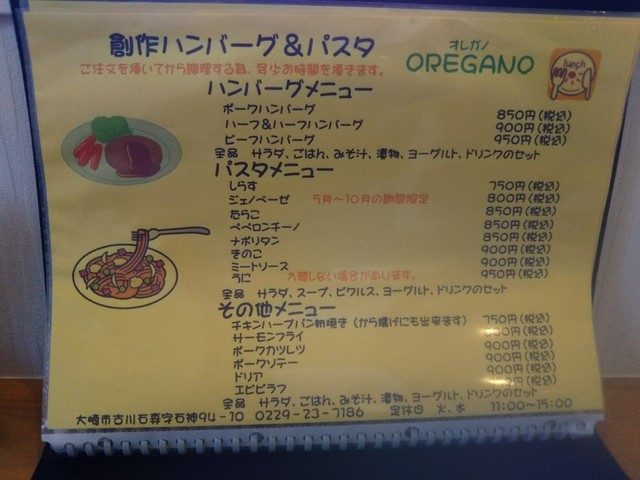 創作ハンバーグ&パスタ
オレガノ
OREGANO
lunch
ご注文を頂いてから調理する為、多少お時間を頂きます。
ハンバーグメニュー
ポークハンバーグ 850円(税込)
ハーフ&ハーフハンバーグ 900円(税込)
ビーフハンバーグ 950円(税込)
全品 サラダ、ごはん、みそ汁、漬物、ヨーグルト、ドリンクのセット
パスタメニュー
しらす 750円(税込)
ジェノベーゼ 5月〜10月の期間限定 800円(税込)
たらこ 850円(税込)
ペペロンチーノ 850円(税込)
ナポリタン 850円(税込)
きのこ 900円(税込)
ミートソース 900円(税込)
うに 入荷しない場合があります。 950円(税込)
全品 サラダ、スープ、ピクルス、ヨーグルト、ドリンクのセット
その他メニュー
チキンハーブパン粉焼き(から揚げにも出来ます) 750円(税込)
サーモンフライ 00円(税込)
ポークカツレツ 900円(税込)
ポークソテー 900円(税込)
ドリア 900円(税込)
エビピラフ 900円(税込)
全品 サラダ、ごはん、みそ汁、漬物、ヨーグルト、ドリンクのセット
大崎市古川石森字石神94-10 0229-23-7186 定休日 火、木 11:00〜15:00